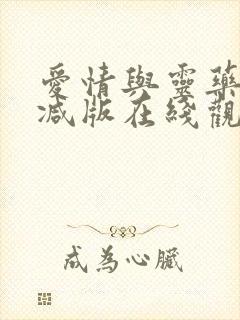 愛情與靈藥
減版在綫觀
成為心臟